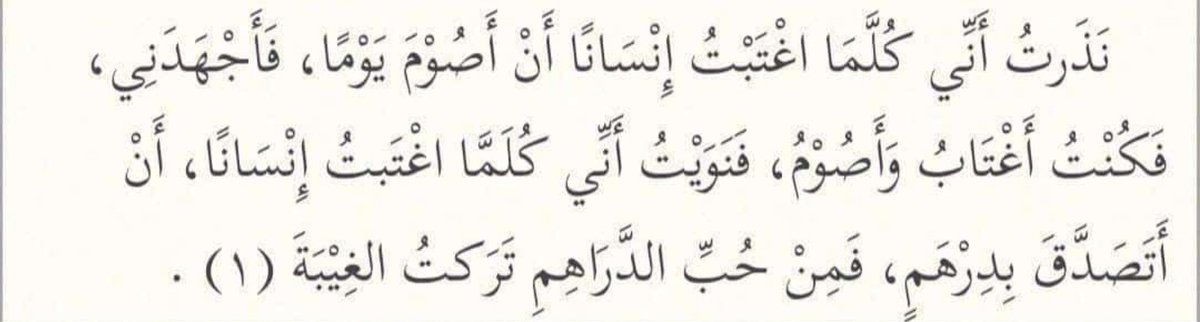 نَذَرتُ أَنِّي كُلَّمَا اغْتَبْتُ إِنْسَانًا أَنْ أَصُوْمَ يَوْمًا، فَأَجْهَدَنِي،
فَكُنْتُ أَغْتَابُ وَأَصُوْمُ، فَنَوَيْتُ أَنِّي كُلَمَّا اغْتَبتُ إِنْسَانًا، أَنْ
أَتَصَدَّقَ بِدِرْهَمٍ، فَمِنْ حُبِّ الدَّرَاهِمِ تَرَكتُ الغِيْبَةَ (١) .